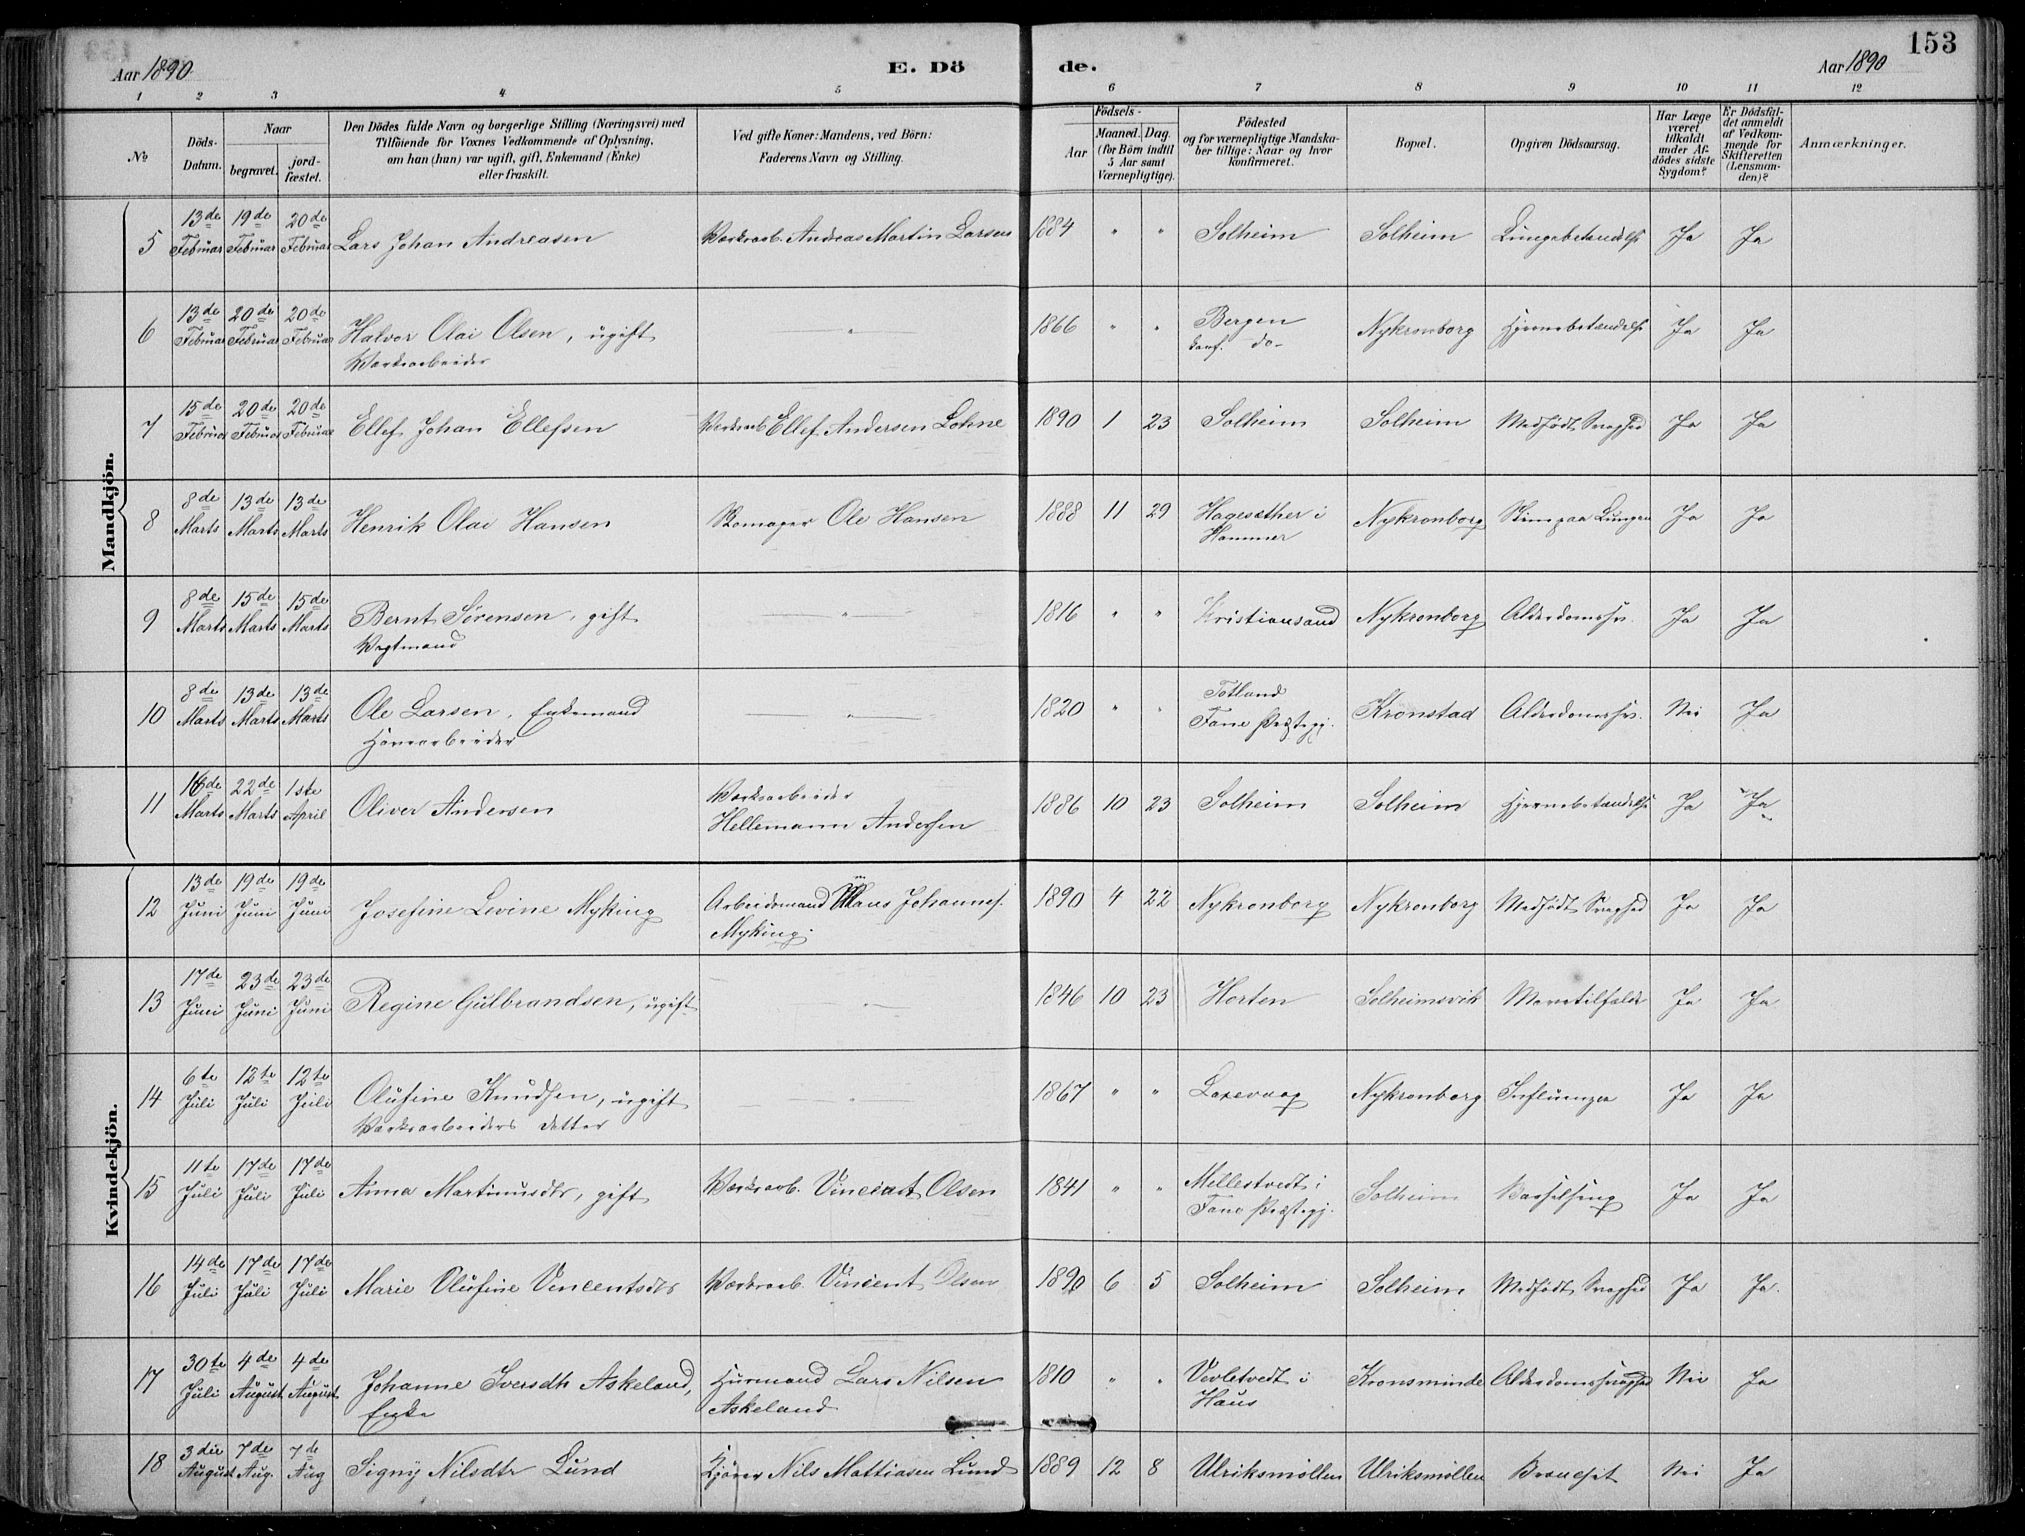 153
Aar 1890
E. Dö
de.
Aar 1890
1 2 3 4 5 6 7 8 9 10 11 12
№
Döds-
Datum.
Naar
begravet.
jord-
fæstet.
Den Dödes fulde Navn og borgerlige Stilling (Næringsvei) med
Tilföiende for Voxnes Vedkommende af Oplysning,
om han (hun) var ugift, gift, Enkemand (Enke)
eller fraskilt.
Ved gifte Koner: Mandens, ved Börn:
Faderens Navn og Stilling.
Födsels-
Aar
Maaned. Dag.
(for Börn indtil
5 Aar samt
Værnepligtige).
Födested
og for værnepligtige Mandska-
ber tillige: Naar og hvor
konfirmeret.
Bopæl.
Opgiven Dödsaarsag.
Har Læge
været
tilkaldt
under Af-
dödes sidste
Sygdom?
Er Dödsfal-
det anmeldt
af Vedkom-
mende for
Skifteretten
(Lensman-
den)?
Anmærkninger.
Mandkjön.
5 13de Februar 19de Februar 20de Februar Lars Johan Andreasen Værksarb. Andreas Martin Larsen 1884 " " Solheim Solheim Lungebetændelse Ja Ja
6 13de Februar 20de Februar 20de Februar Halvor Olai Olsen, ugift " 1866 " " Bergen Nykronborg Hjernebetændelse Ja Ja
Værksarbeider konf. do-
7 15de Februar 20de Februar 20de Februar Ellef Johan Ellefsen Værksarb Ellef Andersen Lohne 1890 1 23 Solheim Solheim Medfödt Svaghed Ja Ja
8 8de Marts 13de Marts 13de Marts Henrik Olai Hansen Skomager Ole Hansen 1888 11 29 Hagesæther i Nykronborg Slim paa Lungen Ja Ja
Hammer
9 8de Marts 15de Marts 15de Marts Bernt Sørensen, gift " 1816 " " Kristiansand Nykronborg Alderdomssv. Ja Ja
Vagtmand
10 8de Marts 13de Marts 13de Marts Ole Larsen, Enkemand " 1820 " " Totland Kronstad Alderdomssv. Nei Ja
Havnearbeider Fane Præstegj.
11 16de Marts 22de Marts 1ste April Oliver Andersen Værksarbeider 1886 10 23 Solheim Solheim Hjernebetændelse Ja Ja
Hellemann Andersen
Kvindekjön.
12 13de Juni 19de Juni 19de Juni Josefine Levine Myking Arbeidsmand Mons Johannes. 1890 4 22 Nykronborg Nykronborg Medfödt Svaghed Ja Ja
Myking.
13 17de Juni 23de Juni 23de Juni Regine Gulbrandsen, ugift " 1846 10 23 Horten Solheimsvik Mavetilfælde Ja Ja
14 6te Juli 12te Juli 12te Juli Olufine Knudsen, ugift " 1867 " " Laxevaag Nykronborg Influenza Ja Ja
Værksarbeiders datter
15 11te Juli 17de Juli 17de Juli Anna Martinusdtr, gift Værksarb. Vincent Olsen 1841 " " Mellestvedt i Solheim Barselseng Ja Ja
Fane Præstegj.
16 14de Juli 17de Juli 17de Juli Marie Olufine Vincentsdtr Værksarb. Vincent Olsen 1890 6 5 Solheim Solheim Medfödt Svaghed Ja Ja.
17 30te Juli 4de August 4de August Johanne Iversdtr Askeland, Huusmand Lars Nilsen 1810 " " i Kronsminde Alderdomssvaghed Nei Ja
Enke Askeland Haus
18 3die August 7de Aug. 7de Aug Signy Nilsdtr Lund Kjører Nils Mattiasen Lund 1889 12 8 Ulriksmøllen Ulriksmøllen Nei Ja